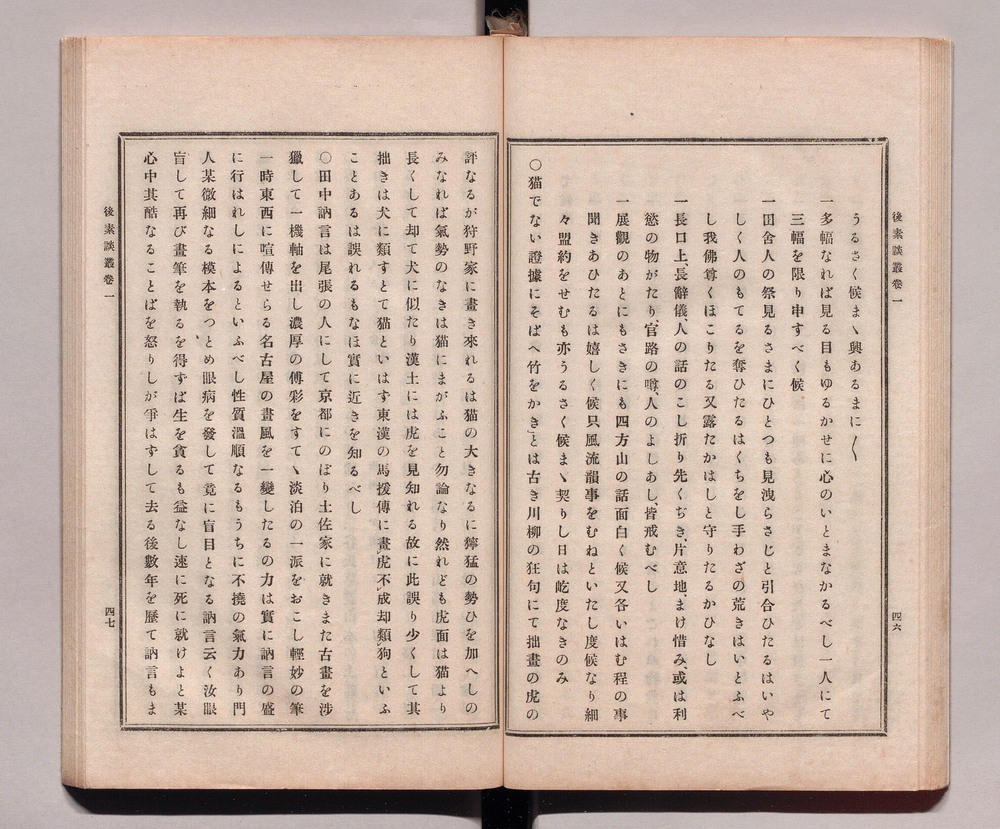 後素談叢卷一
四六
うるさく候まヽ興あるまに〱
一多幅なれば見る目もゆるかせに心のいとまなかるべし一人にて
三幅を限り申すべく候
一田舍人の祭見るさまにひとつも見洩らさじと引合ひたるはいや
しく人のもてるを奪ひたるはくちをし手わざの荒きはいとふべ
し我佛尊くほこりたる又露たかはしと守りたるかひなし
一長口上、長辭儀人の話のこし折り先くぢき、片意地、まけ惜み、或は利
慾の物がたり、官路の噂、人のよしあし、皆戒むべし
一展觀のあとにもさきにも四方山の話面白く候又各いはむ程の事
聞きあひたるは嬉しく候只風流韻事をむねといたし度候なり細
々盟約をせむも亦うるさく候まヽ契りし日は屹度なきのみ
○猫でない證據にそばへ竹をかき」とは古き川柳の狂句にて拙畫の虎の
評なるが狩野家に畫き來れるは猫の大きなるに獰猛の勢ひを加へしの
みなれば氣勢のなきは猫にまがふこと勿論なり然れども虎面は猫より
長くして却て犬に似たり漢土には虎を見知れる故に此誤り少くして其
拙きは犬に類すとて猫といはす東漢の馬援傳に畫虎不成却類狗といふ
ことあるは誤れるもなほ實に近きを知るべし
○田中訥言は尾張の人にして京都にのぼり土佐家に就きまた古畫を涉
獵して一機軸を出し濃厚の傅彩をすてヽ淡泊の一派をおこし輕妙の筆
一時東西に喧傳せらる名古屋の畫風を一變したるの力は實に訥言の盛
に行はれしによるといふべし性質溫順なるもうちに不撓の氣力あり門
人某微細なる模本をつとめ眼病を發して竟に盲目となる訥言云く汝眼
盲して再び畫筆を執るを得ずば生を貪るも益なし速に死に就けよと某
心中其酷なることばを怒りしが爭はずして去る後數年を歷て訥言もま
後素談叢卷一
四七